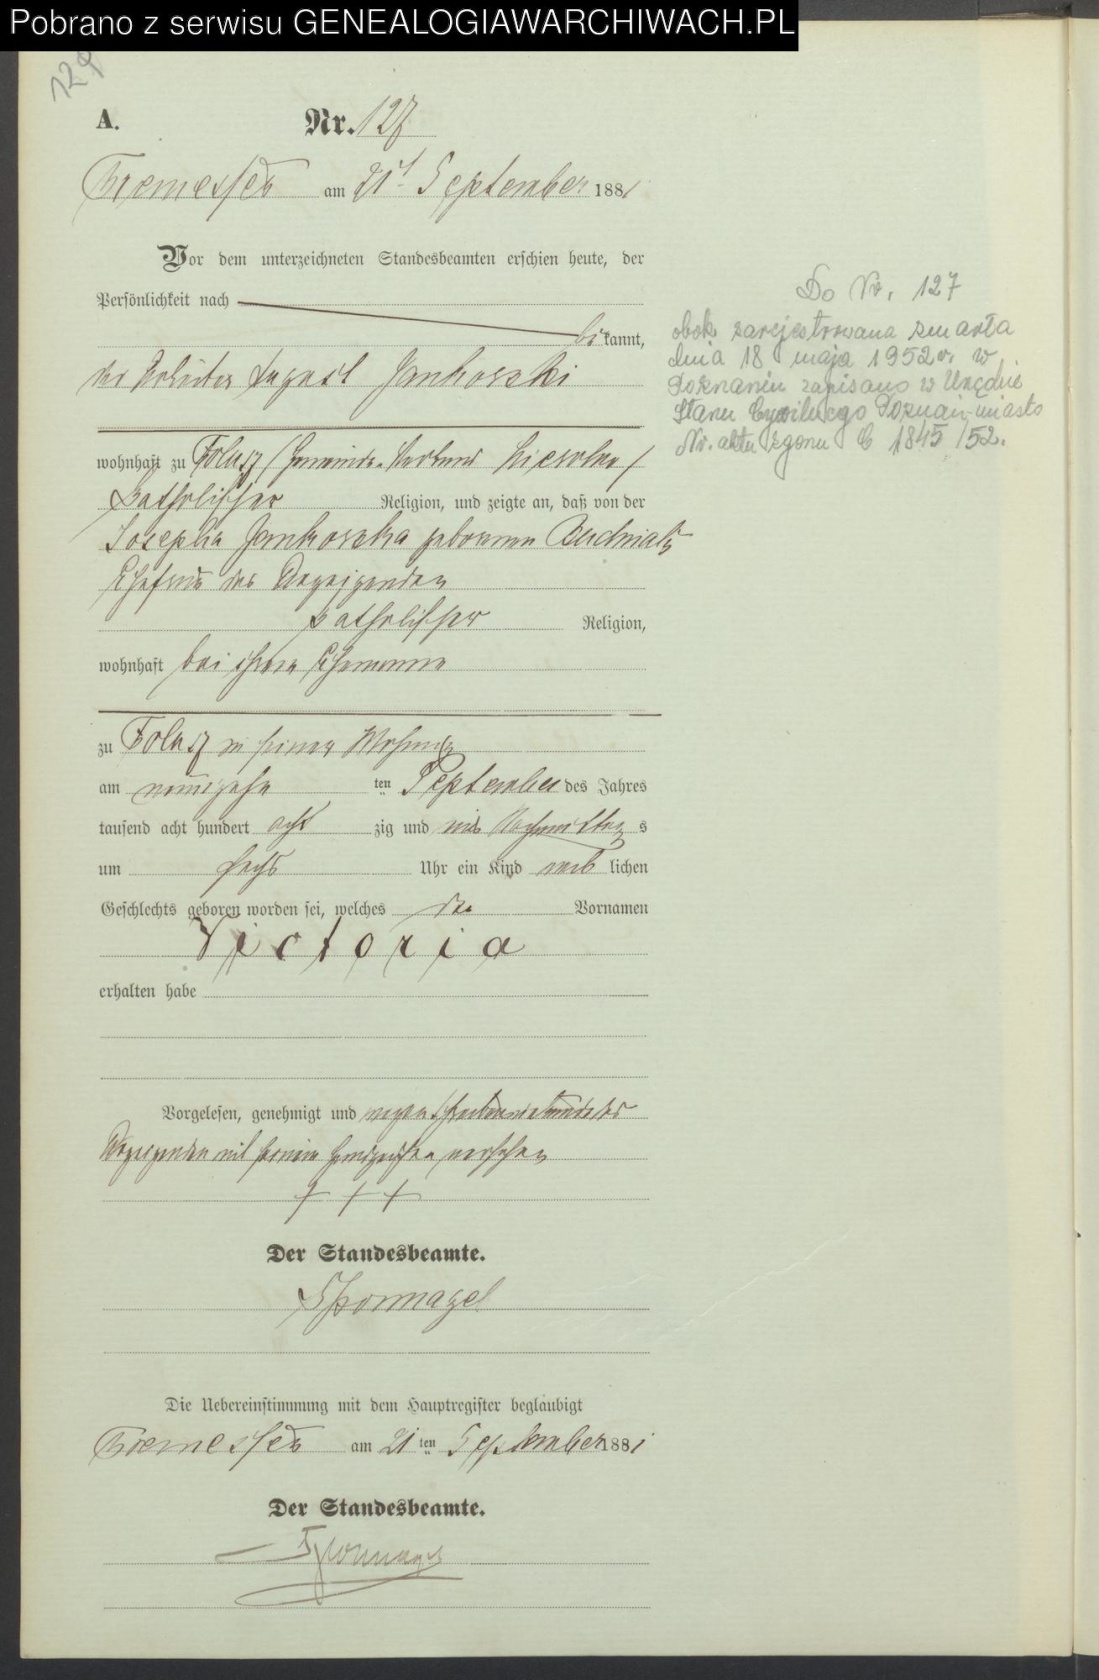 Pobrano z serwisu GENEALOGIAWARCHIWACH.PL
129
A. Nr. 127
Tremessen am 21t September 1881
Vor dem unterzeichneten Standesbeamten erschien heute, der
Persönlichkeit nach
bekannt,
der Arbeiter August Jankoszki
wohnhaft zu Folusz /Gemeinde-Verband
katholischer Religion, und zeigte an, daß von der
Josepha Jankoszka geborenen
Ehefrau des Anzeigenden
katholischer Religion,
wohnhaft bei ihrem Ehemanne
zu Folusz in seiner Wohnung
am neunzehn ten September des Jahres
tausend acht hundert acht zig und eins Nachmittag s
um sechs Uhr ein Kind weib lichen
Geschlechts geboren worden sei, welches den Vornamen
Victoria
erhalten habe
Vorgelesen, genehmigt und wegen Schreibensunkunde des
Anzeigenden mit seinem Handzeichen versehen
+ + +
Der Standesbeamte.
Sponnagel
Die Uebereinstimmung mit dem Hauptregister beglaubigt
Tremessen am 21 ten September 1881
Der Standesbeamte.
Sponnagel
Do Nr. 127
obok zarejestrowana zmarła
dnia 18 maja 1952 r. w
Poznaniu zapisano w Urzędzie
Stanu Cywilnego Poznań-miasto
Nr. aktu zgonu C 1845/52.